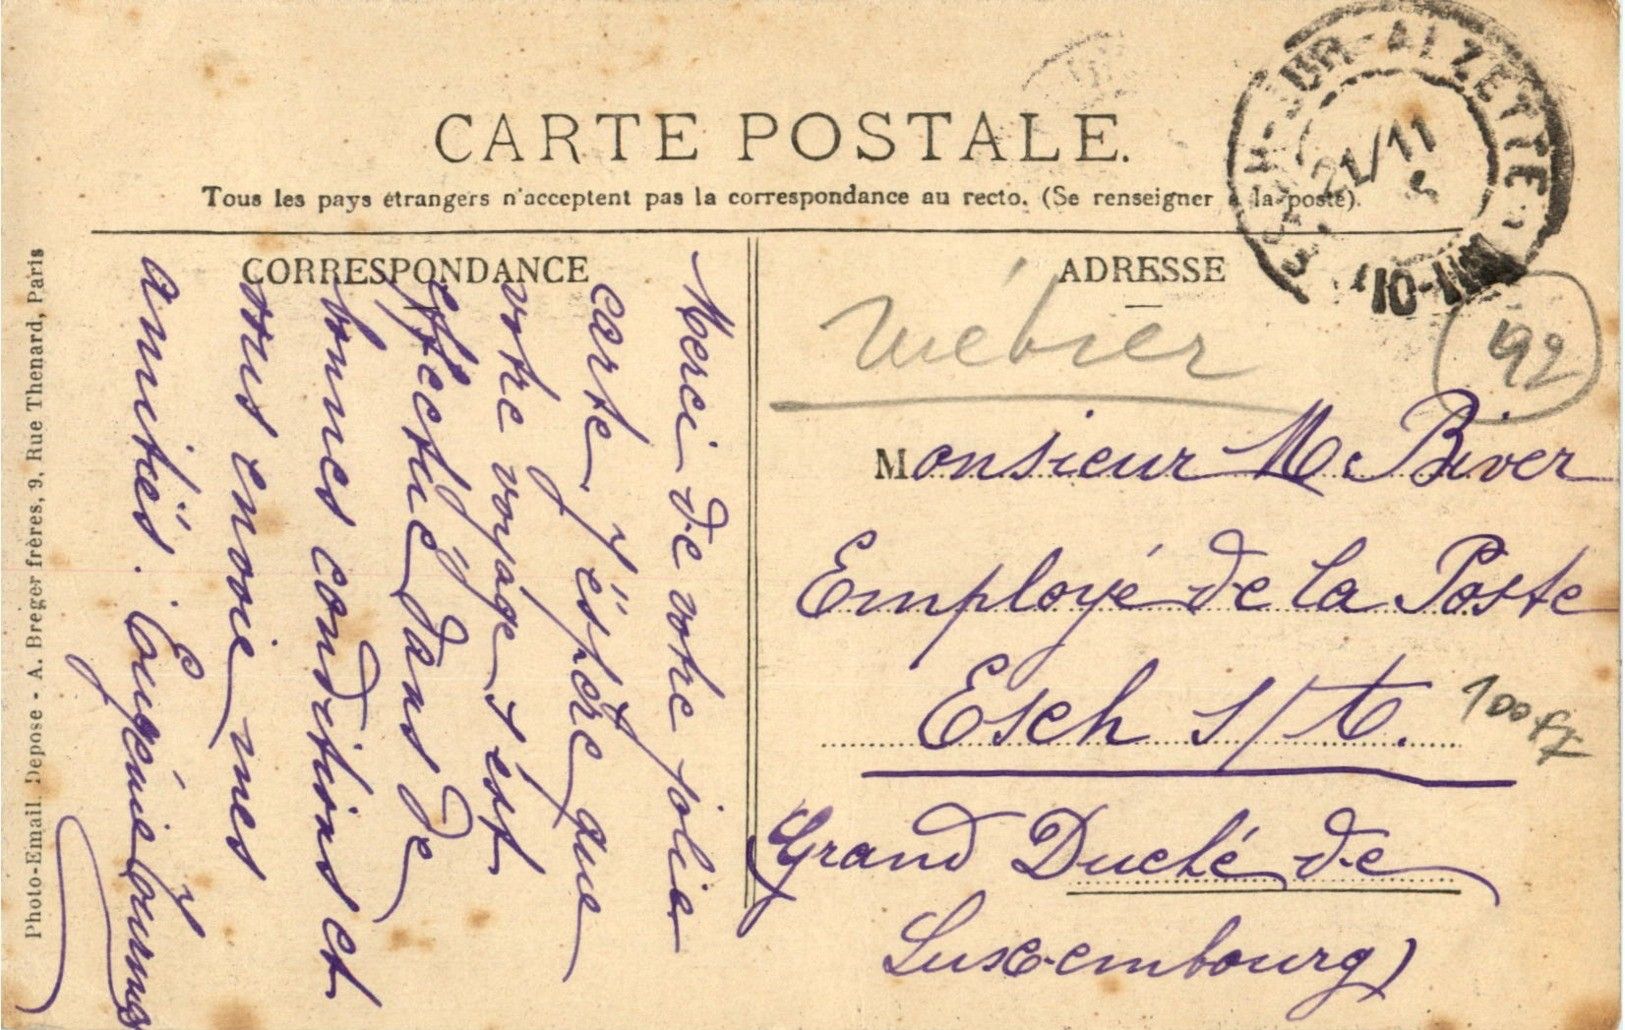 CARTE POSTALE.
Tous les pays étrangers n'acceptent pas la correspondance au recto. (Se renseigner à la poste).
CORRESPONDANCE
Merci de votre jolie
carte. J'éspère que
votre voyage s'est
effectué dans de
bonnes conditions et
vous envoie mes
amitiés. Eugénie
ADRESSE
192
Monsieur M. Biver
Employé de la Poste
Esch s/A.
100 Fr
Grand Duché de
Luxembourg
ESCH-SUR-ALZETTE
21/11
Photo-Email. Déposé - A. Breger frères, 9, Rue Thenard, Paris